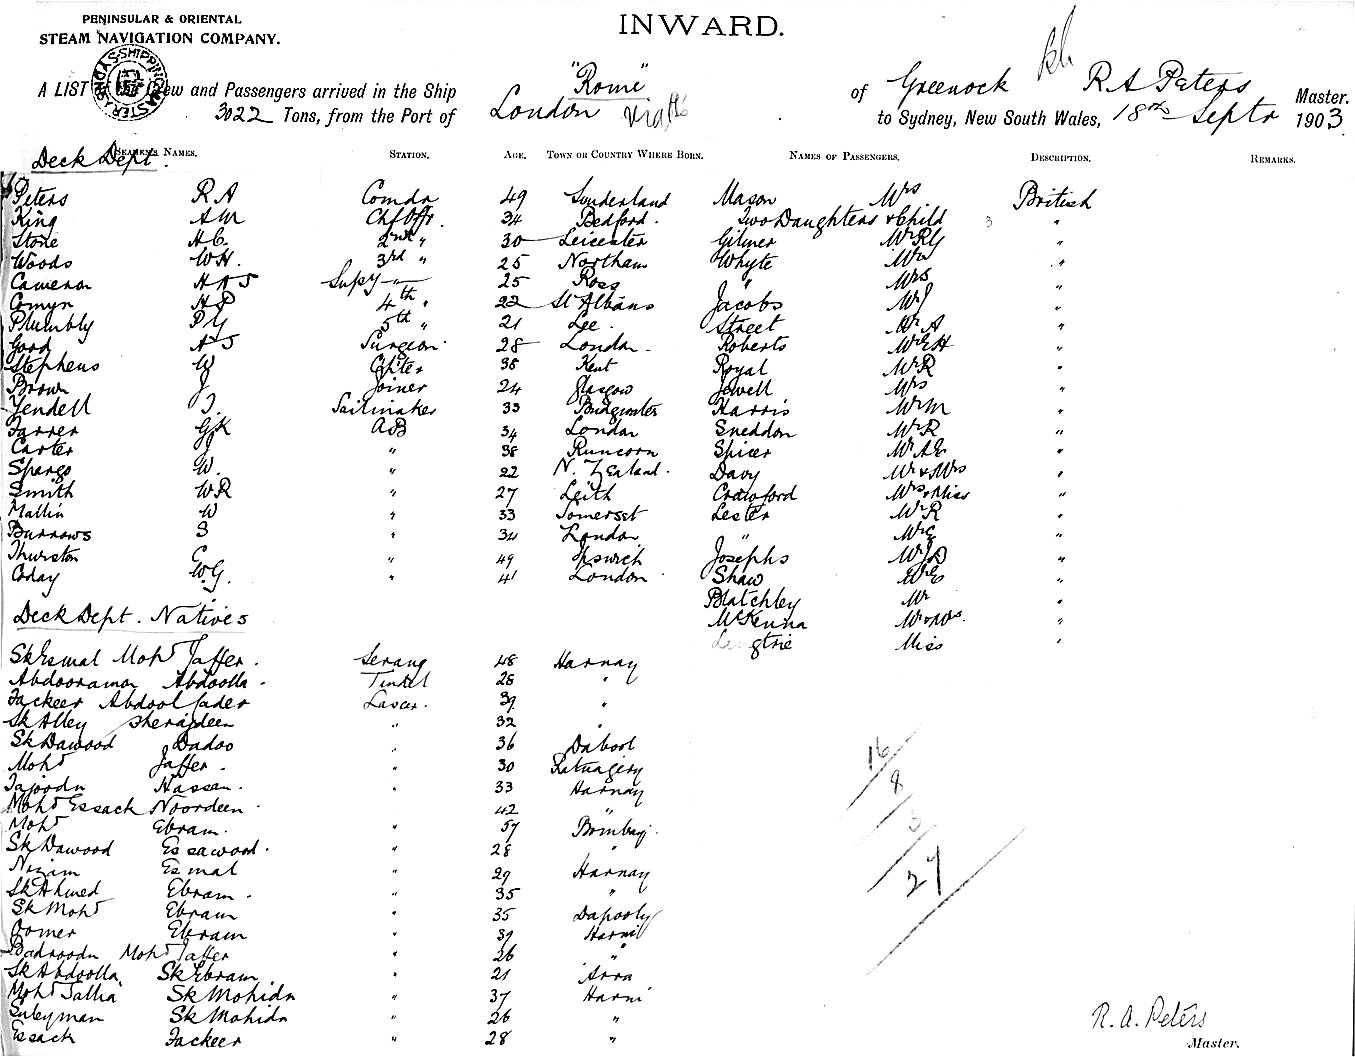 PENINSULAR & ORIENTAL
STEAM NAVIGATION COMPANY.
INWARD.
A LIST of the Crew and Passengers arrived in the Ship "Rome" of Greenock R A Peters Master.
3022 Tons, from the Port of London to Sydney, New South Wales, 18th Septr 1903
Deck Dept.
SEAMEN'S NAMES. STATION. AGE. TOWN OR COUNTRY WHERE BORN. NAMES OF PASSENGERS. DESCRIPTION. REMARKS.
Peters R A Comdr 49 Sunderland Mason Mrs British
King A M Chf Offr. 34 Bedford. Two Daughters & Child 3 "
Stone H C. 2nd " 30 Leicester Gilmer Mr R G "
Woods W H. 3rd " 25 Northam Whyte Mr "
Cameron H A S Supy 25 Ross " Mrs "
Comyn H P 4th " 22 St Albans Jacobs Mr J "
Plumbly P G 5th " 21 Lee. Street Mr A "
Good A S Surgeon 28 London. Roberts Mr E H "
Stephens W 38 Kent Royal Mr R "
Brown J Joiner 24 Glasgow Jowell Mrs "
Yendell J. Sailmaker 33 Bridgwater Harris Mr M "
Farrer G K AB 34 London Sneddon Mr R "
Carter J " 38 Runcorn Spicer Mr A E "
Spargo W. " 22 N. Zealand. Davy Mr & Mrs "
Smith W R " 27 Leith Crawford Mrs & Miss "
Mallin W " 33 Somerset Lester Mr R "
Burrows S " 34 London " "
Thurston C " 49 Ipswich Josephs Mr J D "
Coday W G. " 41 London Shaw Mr E "
Blatchley Mr "
Deck Dept. Natives
McKenna Mr & Mrs. "
Miss "
Sk Esmal Mohd Jaffer. Serang 48 Harnay
Abdooraman Abdoolla. Tindel 28 "
Fackeer Abdool Cader Lascar. 39 "
Sk Alley Sherajdeen " 32 "
Sk Dawood Dadoo " 36 Dabool
Mohd Jaffer. " 30 Ratnagery
Tajoodn Hassan. " 33 Harnay
Mohd Essack Noordeen. 42 "
Mohd Ebram. " 57 Bombay.
Sk Dawood Essawood. " 28 "
Nizam Esmal " 29 Harnay
Sk Ahmed Ebram. " 35 "
Sk Mohd Ebram " 35 Dapooly
Oomer Ebram " 39 Harni
Badroodn Mohd Jaffer " 26 "
Sk Abdoolla Sk Ebram " 21 Arra
Mohd Sallia Sk Mohidn " 37 Harni
Suleyman Sk Mohidn " 26 "
Essack Fackeer " 28 "
16
8
3
27
R. A. Peters
Master.